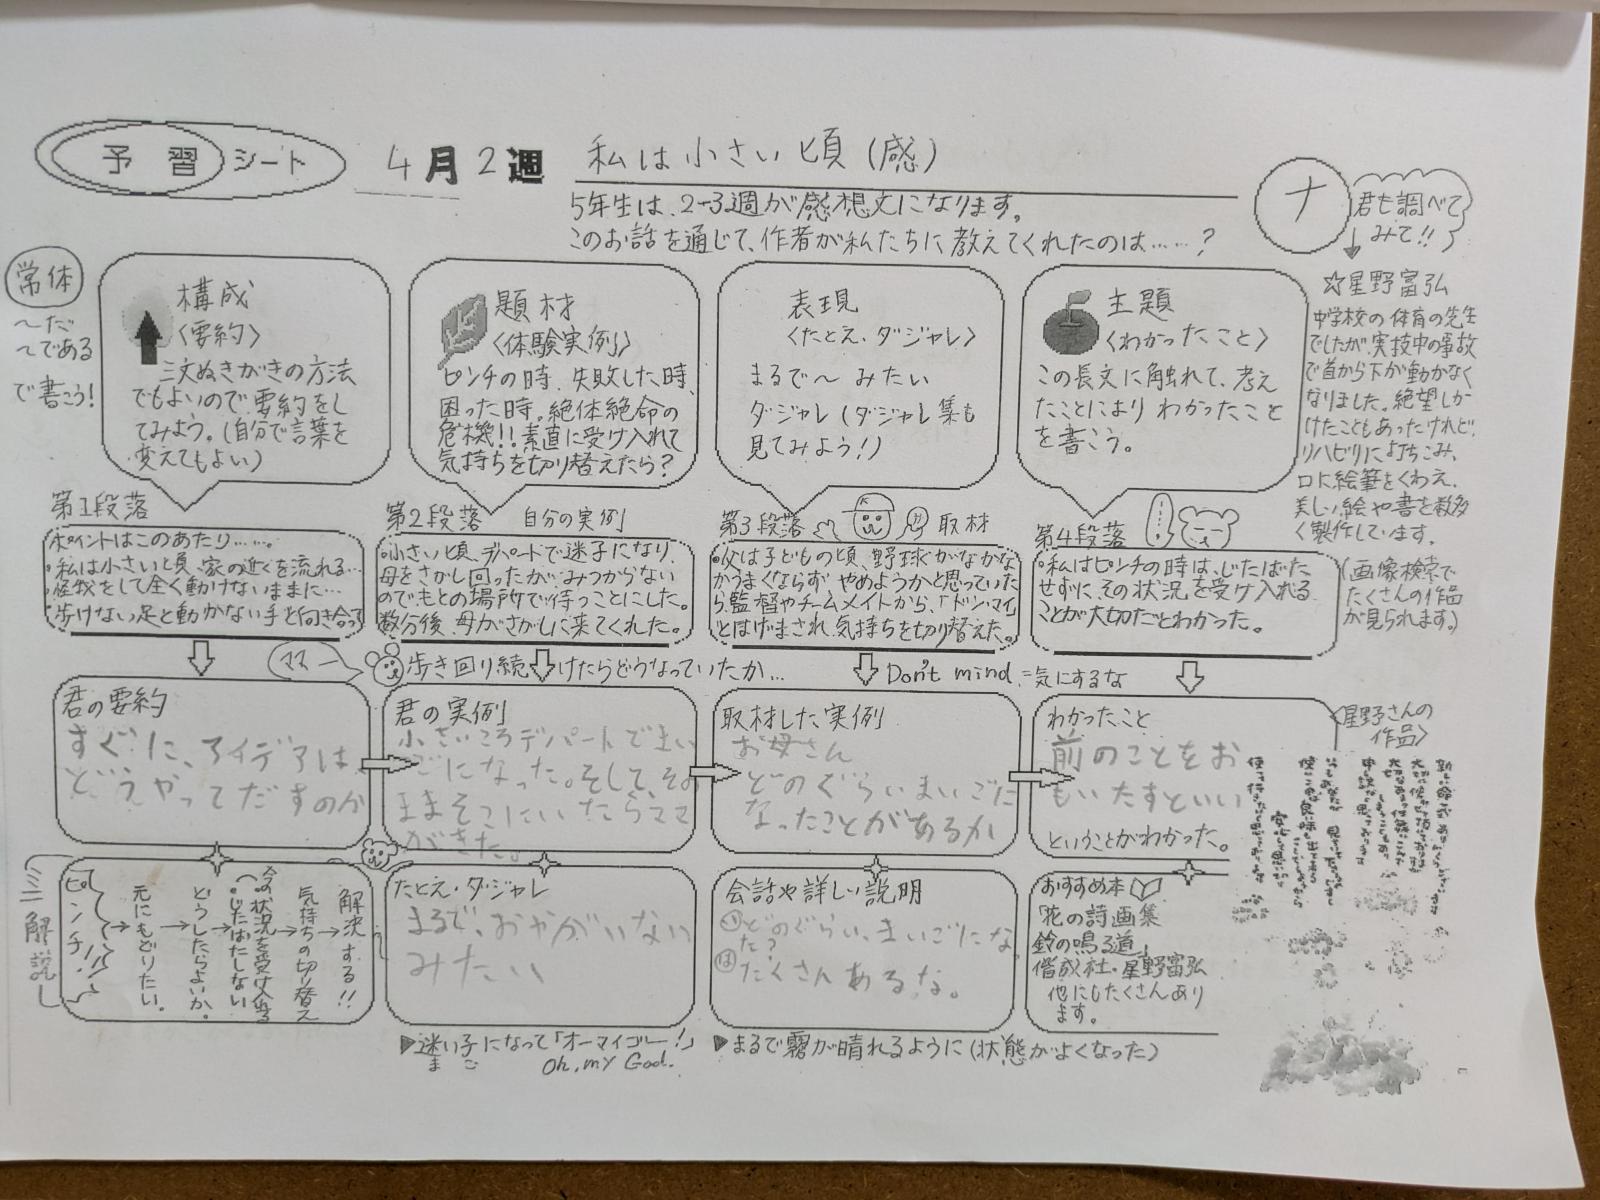 予習シート
4月2週
私は小さい頃(感)
5年生は、2-3週が感想文になります。
このお話を通じて、作者が私たちに教えてくれたのは……?
ナ
君も調べて
みて!!
常体
～だ
～である
で書こう!
構成
〈要約〉
三文ぬきがきの方法
でもよいので、要約をし
てみよう。(自分で言葉を
変えてもよい)
題材
〈体験実例〉
ピンチの時、失敗した時、
困った時。絶体絶命の
危機!!素直に受け入れて
気持ちを切り替えたら?
表現
〈たとえ・ダジャレ〉
まるで～みたい
ダジャレ(ダジャレ集も
見てみよう!)
主題
〈わかったこと〉
この長文に触れて、考え
たことにより わかったこと
を書こう。
☆星野富弘
中学校の体育の先生
でしたが、実技中の事故
で首から下が動かなく
なりました。絶望しか
けたこともあったけれど、
リハビリに打ちこみ、
口に絵筆をくわえ、
美しい絵や書を数多
く製作しています。
(画像検索で
たくさんの作品
が見られます。)
第1段落
ポイントはこのあたり……。
・私は小さい頃、家の近くを流れる…
・経験をして全く動けないままに…
・歩けない足と動かない手と向き合って
第2段落 自分の実例
・小さい頃、デパートで迷子になり、
母をさがし回ったが、みつからない
のでもとの場所で待つことにした。
数分後、母がさがしに来てくれた。
第3段落 取材
・父は子どもの頃、野球がなかなか
うまくならず、やめようかと思っていた
ら、監督やチームメイトから、「ドンマイ」
とはげまされ、気持ちを切り替えた。
第4段落
・私はピンチの時は、じたばた
せずに、その状況を受け入れる
ことが大切だとわかった。
ママー
歩き回り続けたらどうなっていたか…
Don't mind.=気にするな
君の要約
すぐに、アイデアは、
どうやってだすのか
君の実例
小さいころデパートでまい
ごになった。そして、その
ままそこにいたらママ
がきた。
取材した実例
お母さん
どのぐらいまいごに
なったことがあるか
わかったこと
前のことをお
もいたすといい
ということがわかった。
〈星野さんの
作品〉
ミニ解説
ピンチ!!
→元にもどりたい。
→どうしたらよいか。
→今の状況を受け入れる
(じたばたしない)
→気持ちの切り替え
→解決する!!
たとえ・ダジャレ
まるで、おやがいない
みたい
会話や詳しい説明
どのぐらい、まいごにな
た?
たくさんあるな。
おすすめ本
「花の詩画集
鈴の鳴る道」
偕成社・星野富弘
他にもたくさんあり
ます。
▶迷い子になって「オーマイゴー!」
ま ご Oh, my God.
▶まるで霧が晴れるように(状態がよくなった)